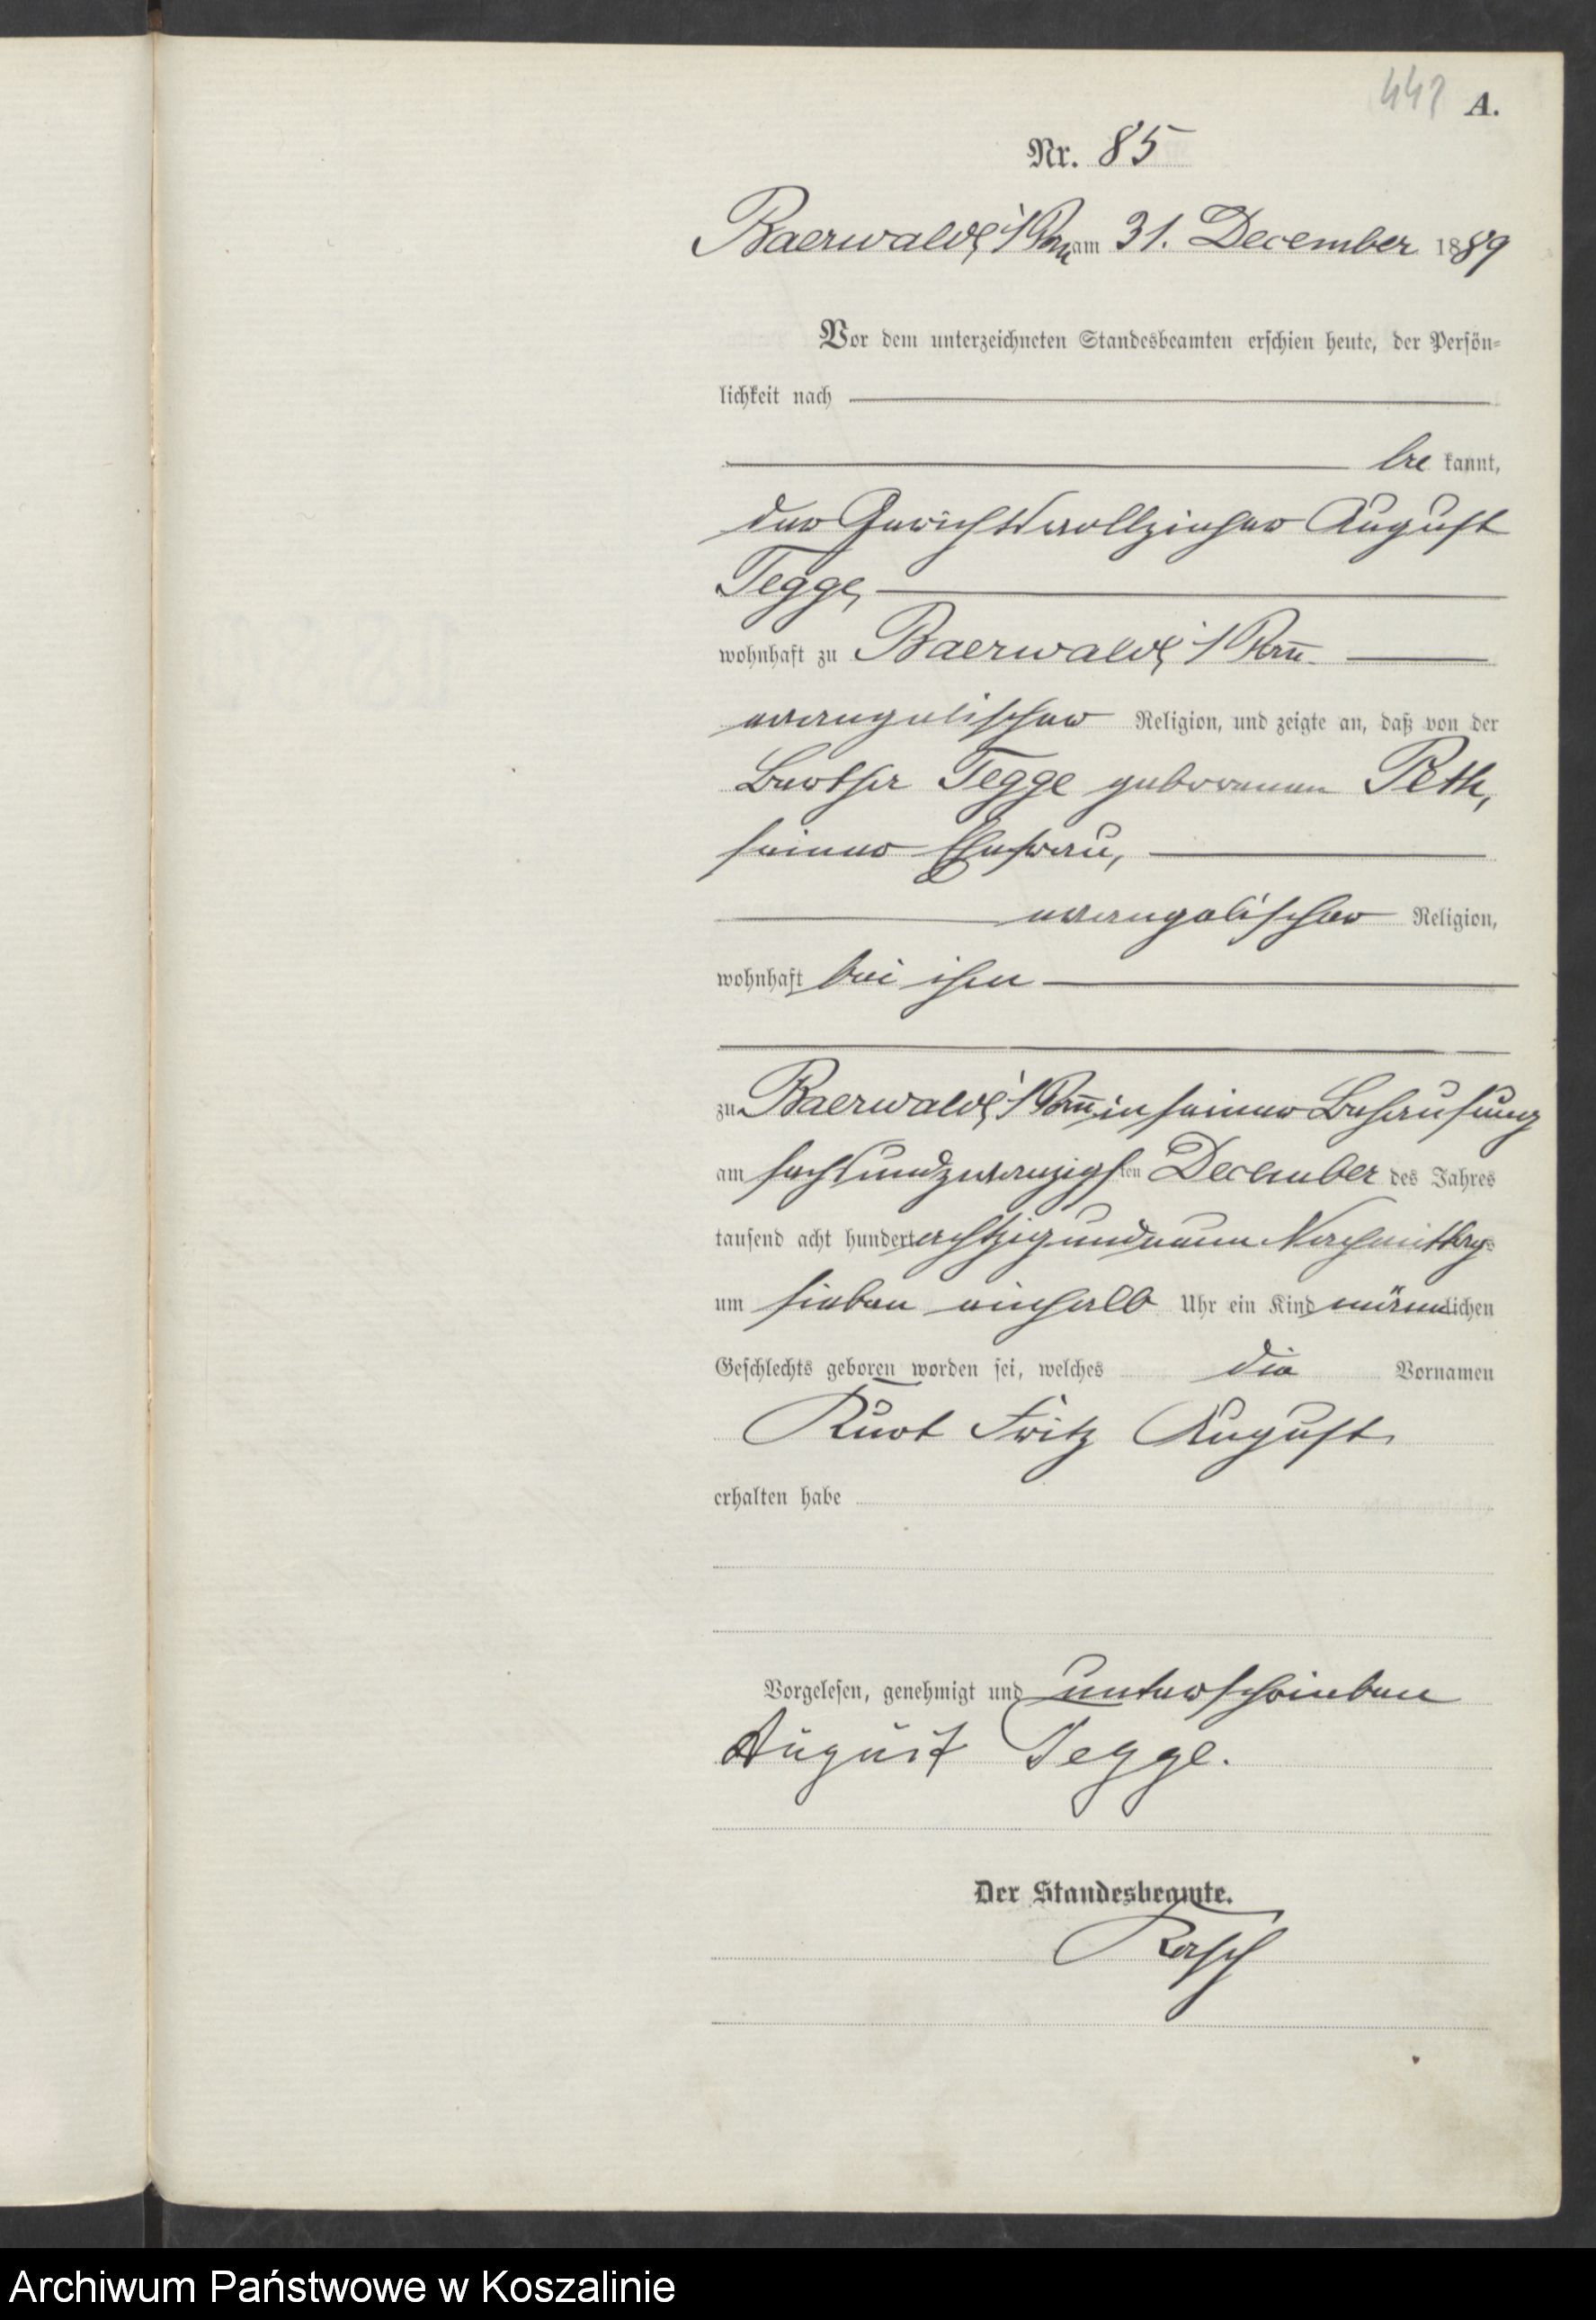 A.
Nr. 85
Baerwalde i/Pom am 31. December 1889
Vor dem unterzeichneten Standesbeamten erschien heute, der Persön-
lichkeit nach
be kannt,
der Gerichtsvollzieher August
Tegge,
wohnhaft zu Baerwalde i/Pom.
evangelischer Religion, und zeigte an, daß von der
Bertha Tegge geborenen Peth,
seiner Ehefrau,
evangelischer Religion,
wohnhaft bei ihm
zu Baerwalde i/Pom in seiner Behausung
am sechsundzwanzigsten December des Jahres
tausend acht hundert achtzig und neun Nachmittags
um sieben einhalb Uhr ein Kind männlichen
Geschlechts geboren worden sei, welches die Vornamen
Kurt Fritz August
erhalten habe
Vorgelesen, genehmigt und unterschrieben
August Tegge.
Der Standesbeamte.
Rasch
Archiwum Państwowe w Koszalinie